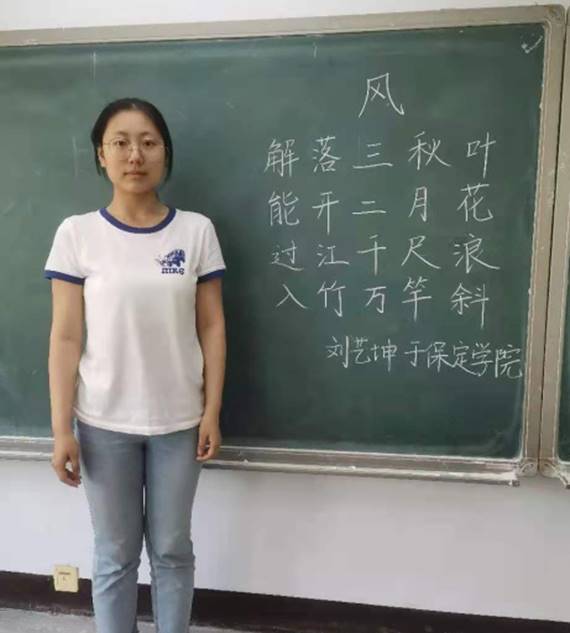 风
解落三秋叶
能开二月花
过江千尺浪
入竹万竿斜
刘艺坤于保定学院